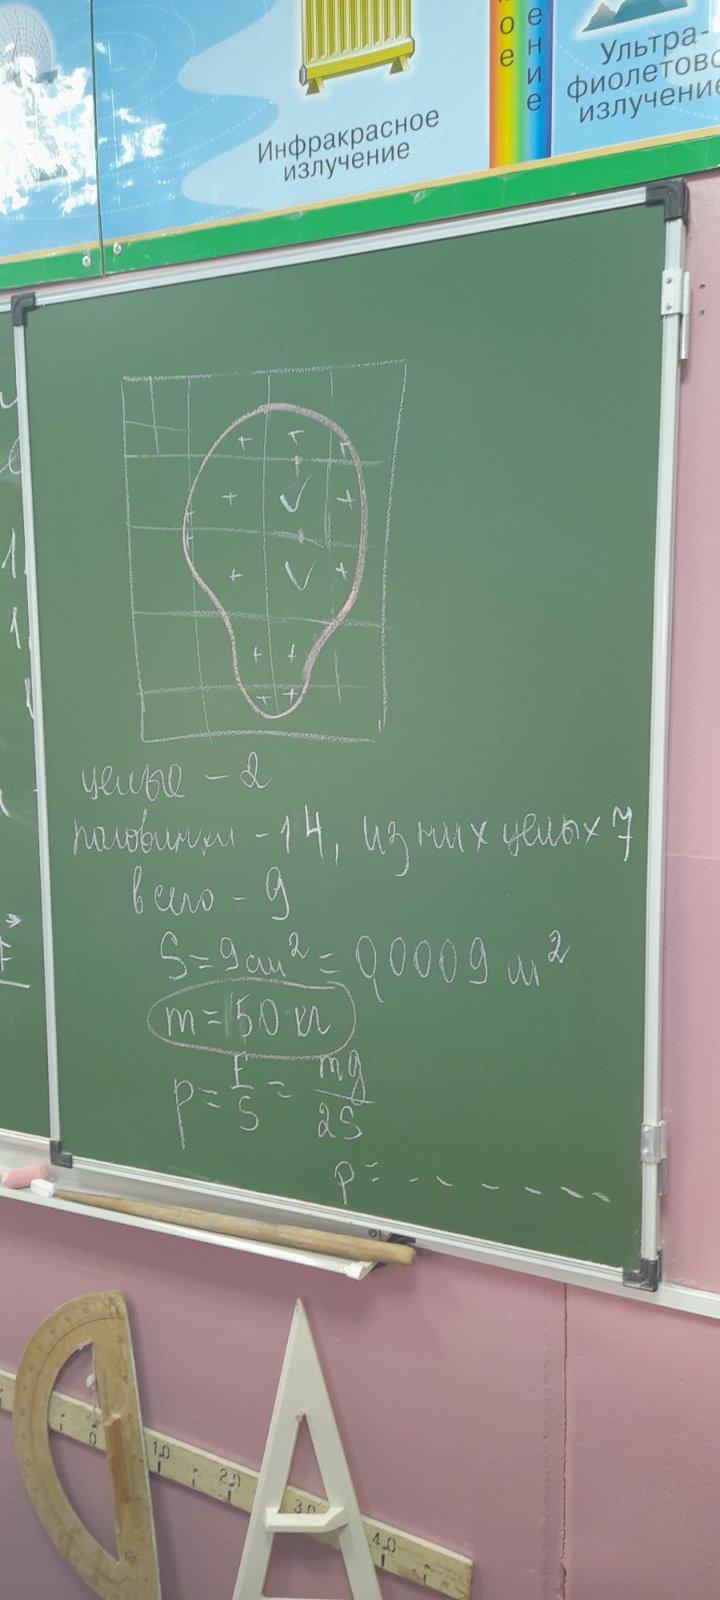 Инфракрасное
излучение
ое
ение
Ультра-
фиолетово
излучение
целые - 2
половинки - 14, из них целых 7
всего - 9
S = 9 см² = 0,0009 м²
m = 50 кг
p = F/S = mg/2S
p = - - - - - -
10
20
30
40